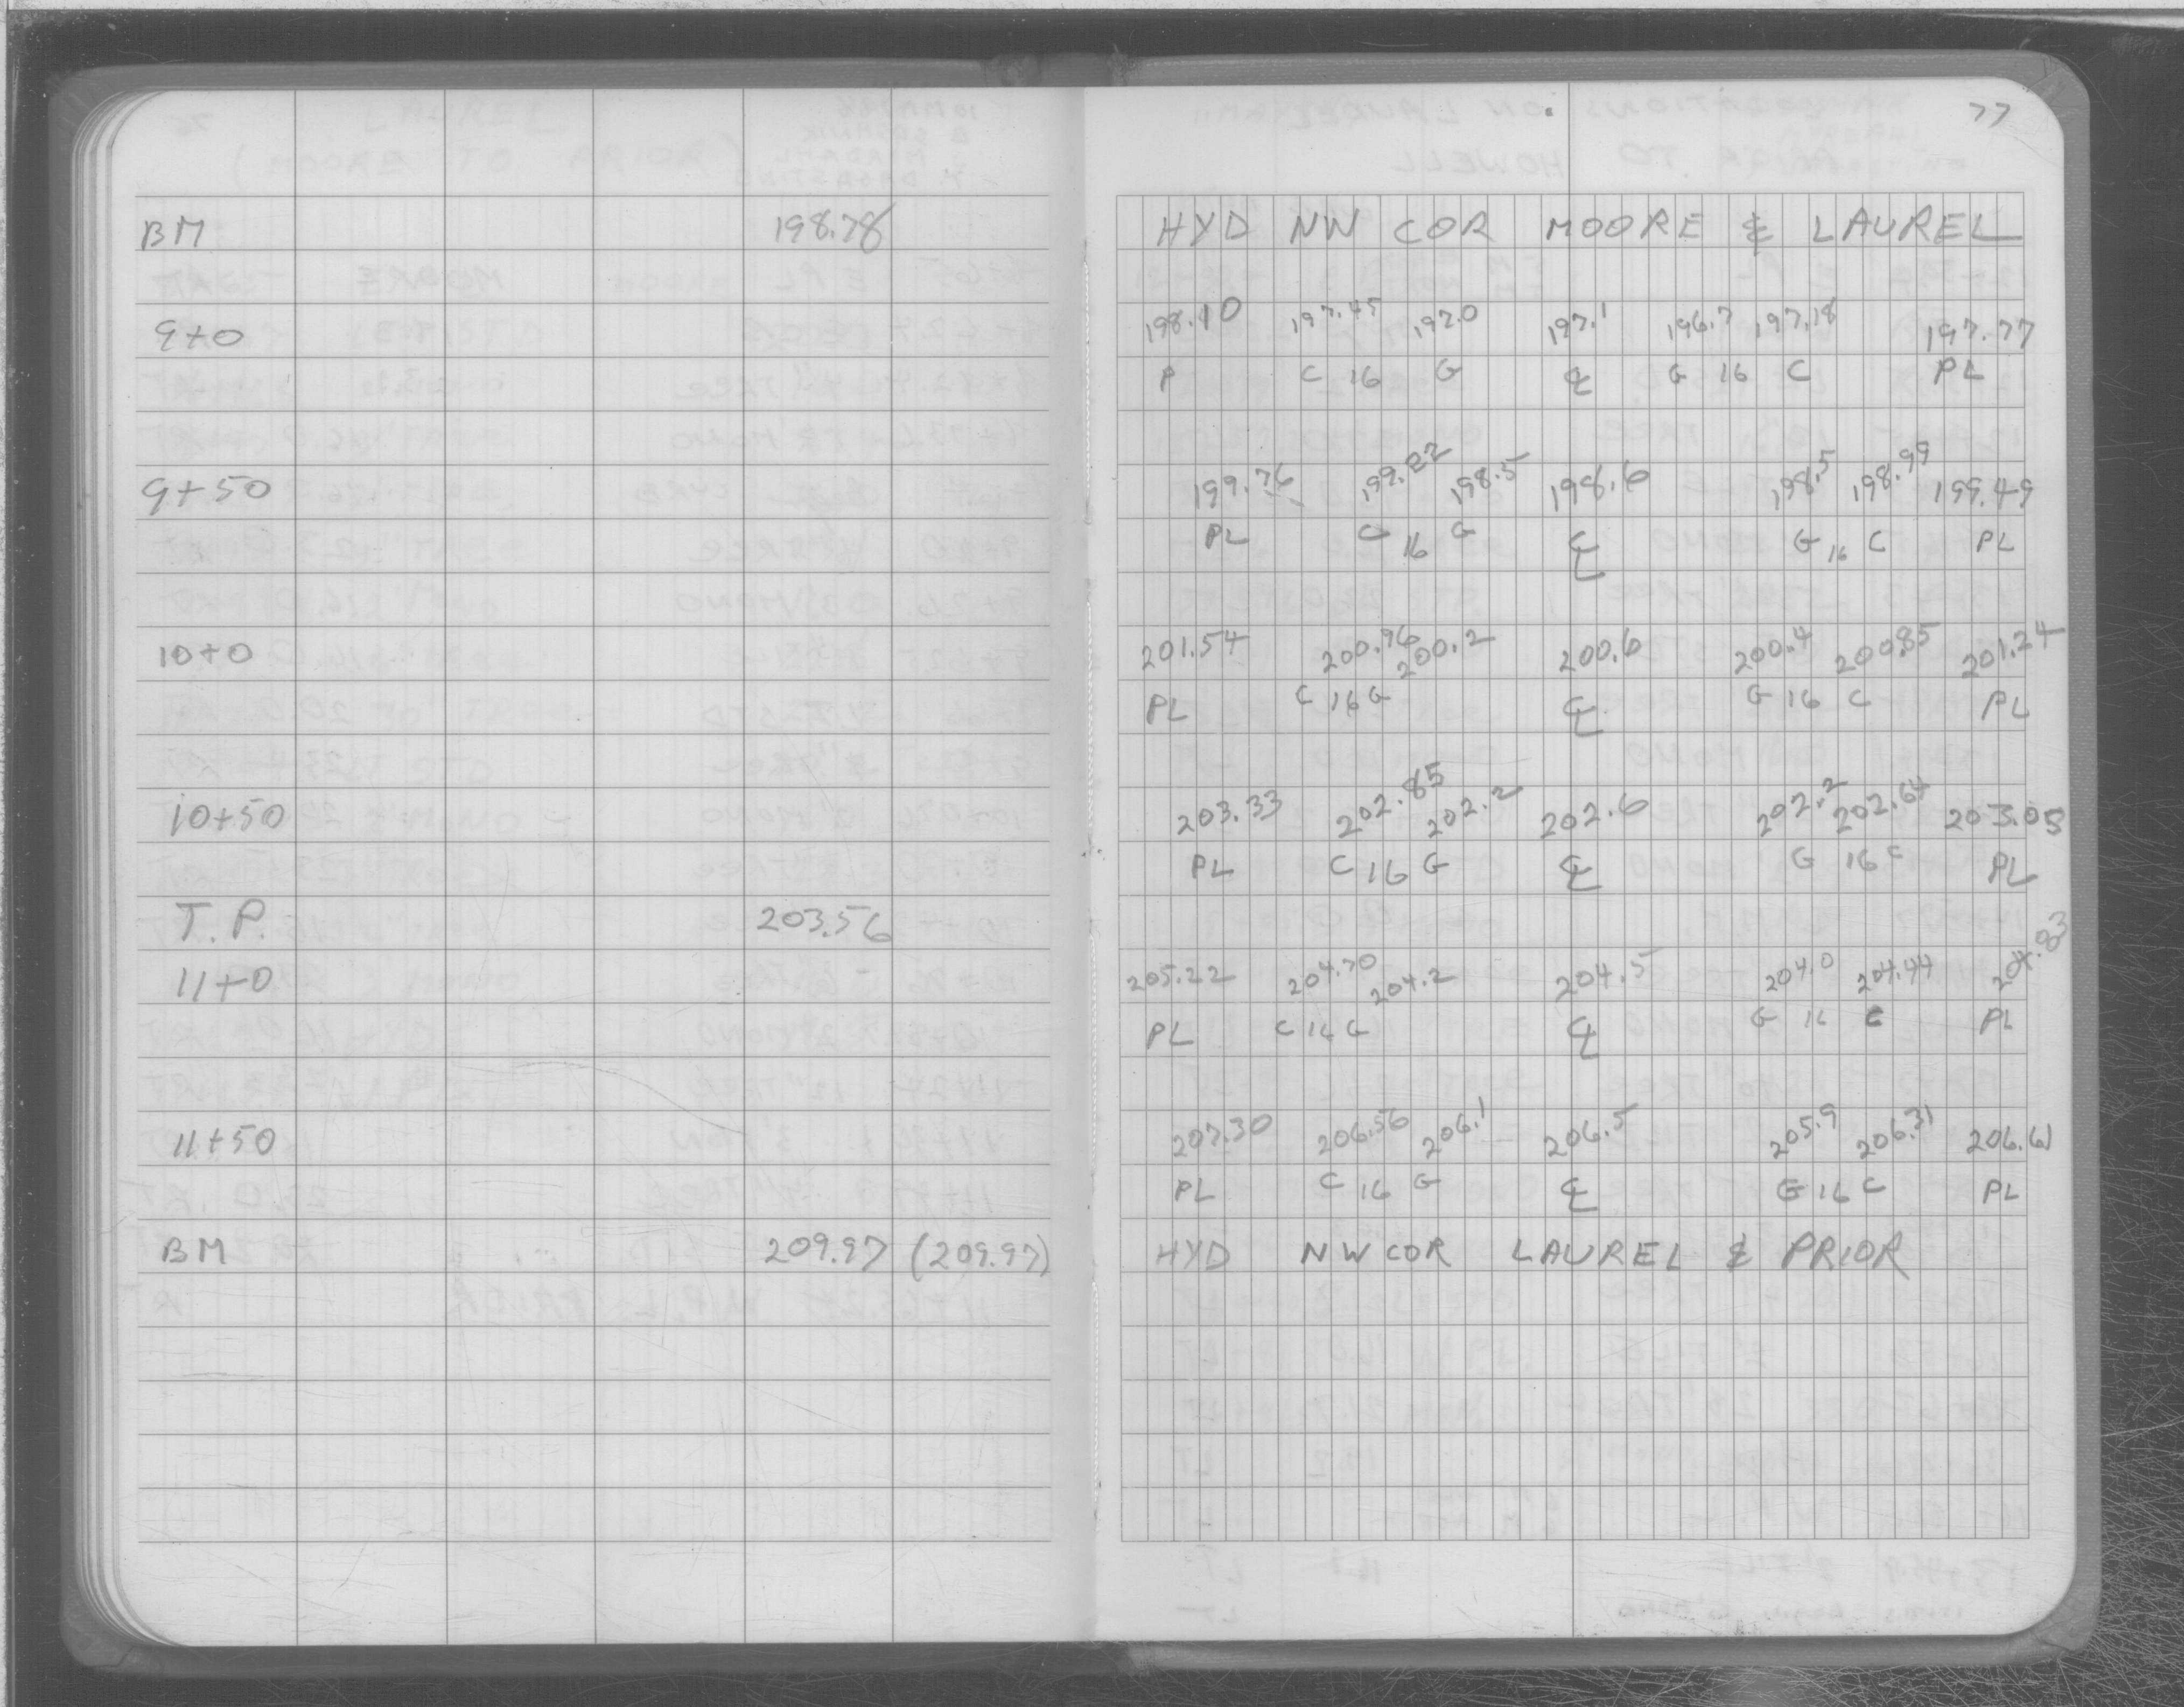 77
BM 198.78 HYD NW COR MOORE & LAUREL
9+0 198.10 197.45 197.0 197.1 196.7 197.18 197.77
P C 16 G ℄ G 16 C PL
9+50 199.76 199.22 198.5 198.6 198.5 198.99 199.49
PL C 16 G ℄ G 16 C PL
10+0 201.54 200.96 200.2 200.6 200.4 200.85 201.24
PL C 16 G ℄ G 16 C PL
10+50 203.33 202.85 202.2 202.6 202.2 202.64 203.05
PL C 16 G ℄ G 16 C PL
T.P. 203.56
11+0 205.22 204.70 204.2 204.5 204.0 204.44 204.83
PL C 16 G ℄ G 16 C PL
11+50 207.30 206.56 206.1 206.5 205.9 206.31 206.61
PL C 16 G ℄ G 16 C PL
BM 209.97 (209.97) HYD NW COR LAUREL & PRIOR